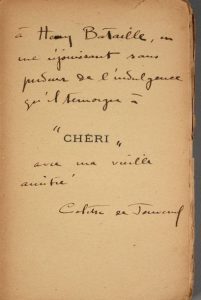 à Henry Bataille, en
me réjouissant sans
pudeur de l'indulgence
qu'il témoigne à
"CHÉRI"
avec ma vieille
amitié
Colette de Jouvenel